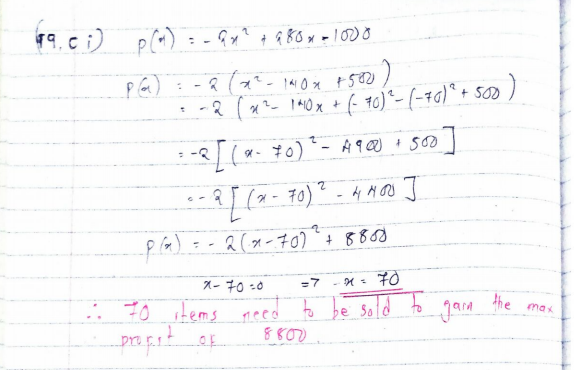 19. c i) p(x) = -2x² + 280x - 1000
p(x) = -2 (x² - 140x + 500)
= -2 (x² - 140x + (-70)² - (-70)² + 500)
= -2 [(x - 70)² - 4900 + 500]
= -2 [(x - 70)² - 4400]
p(x) = -2(x - 70)² + 8800
x - 70 = 0 => x = 70
∴ 70 items need to be sold to gain the max
profit of 8800.